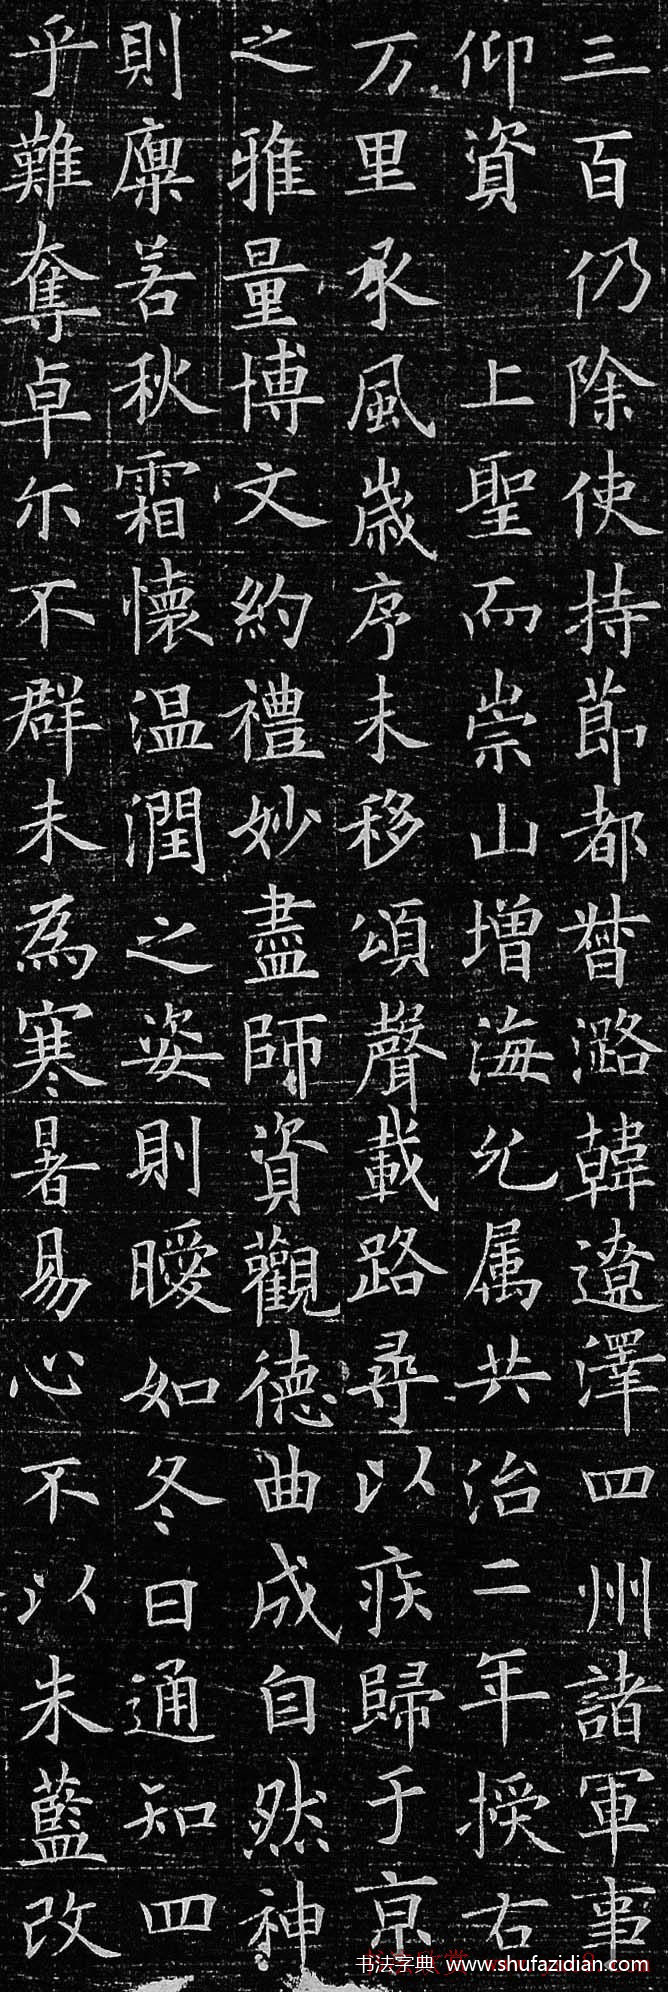 三百仍除使持節都督潞韓遼澤四州諸軍事
仰資上聖而崇山增海允属共治二年授右
万里承風歳序未移頌聲載路尋以疾歸于京
之雅量博文約禮妙盡師資觀德曲成自然神
則廩若秋霜懷温潤之姿則曖如冬日通知四
乎難奪卓尓不群未為寒暑易心不以朱藍改
书法字典 www.shufazidian.com